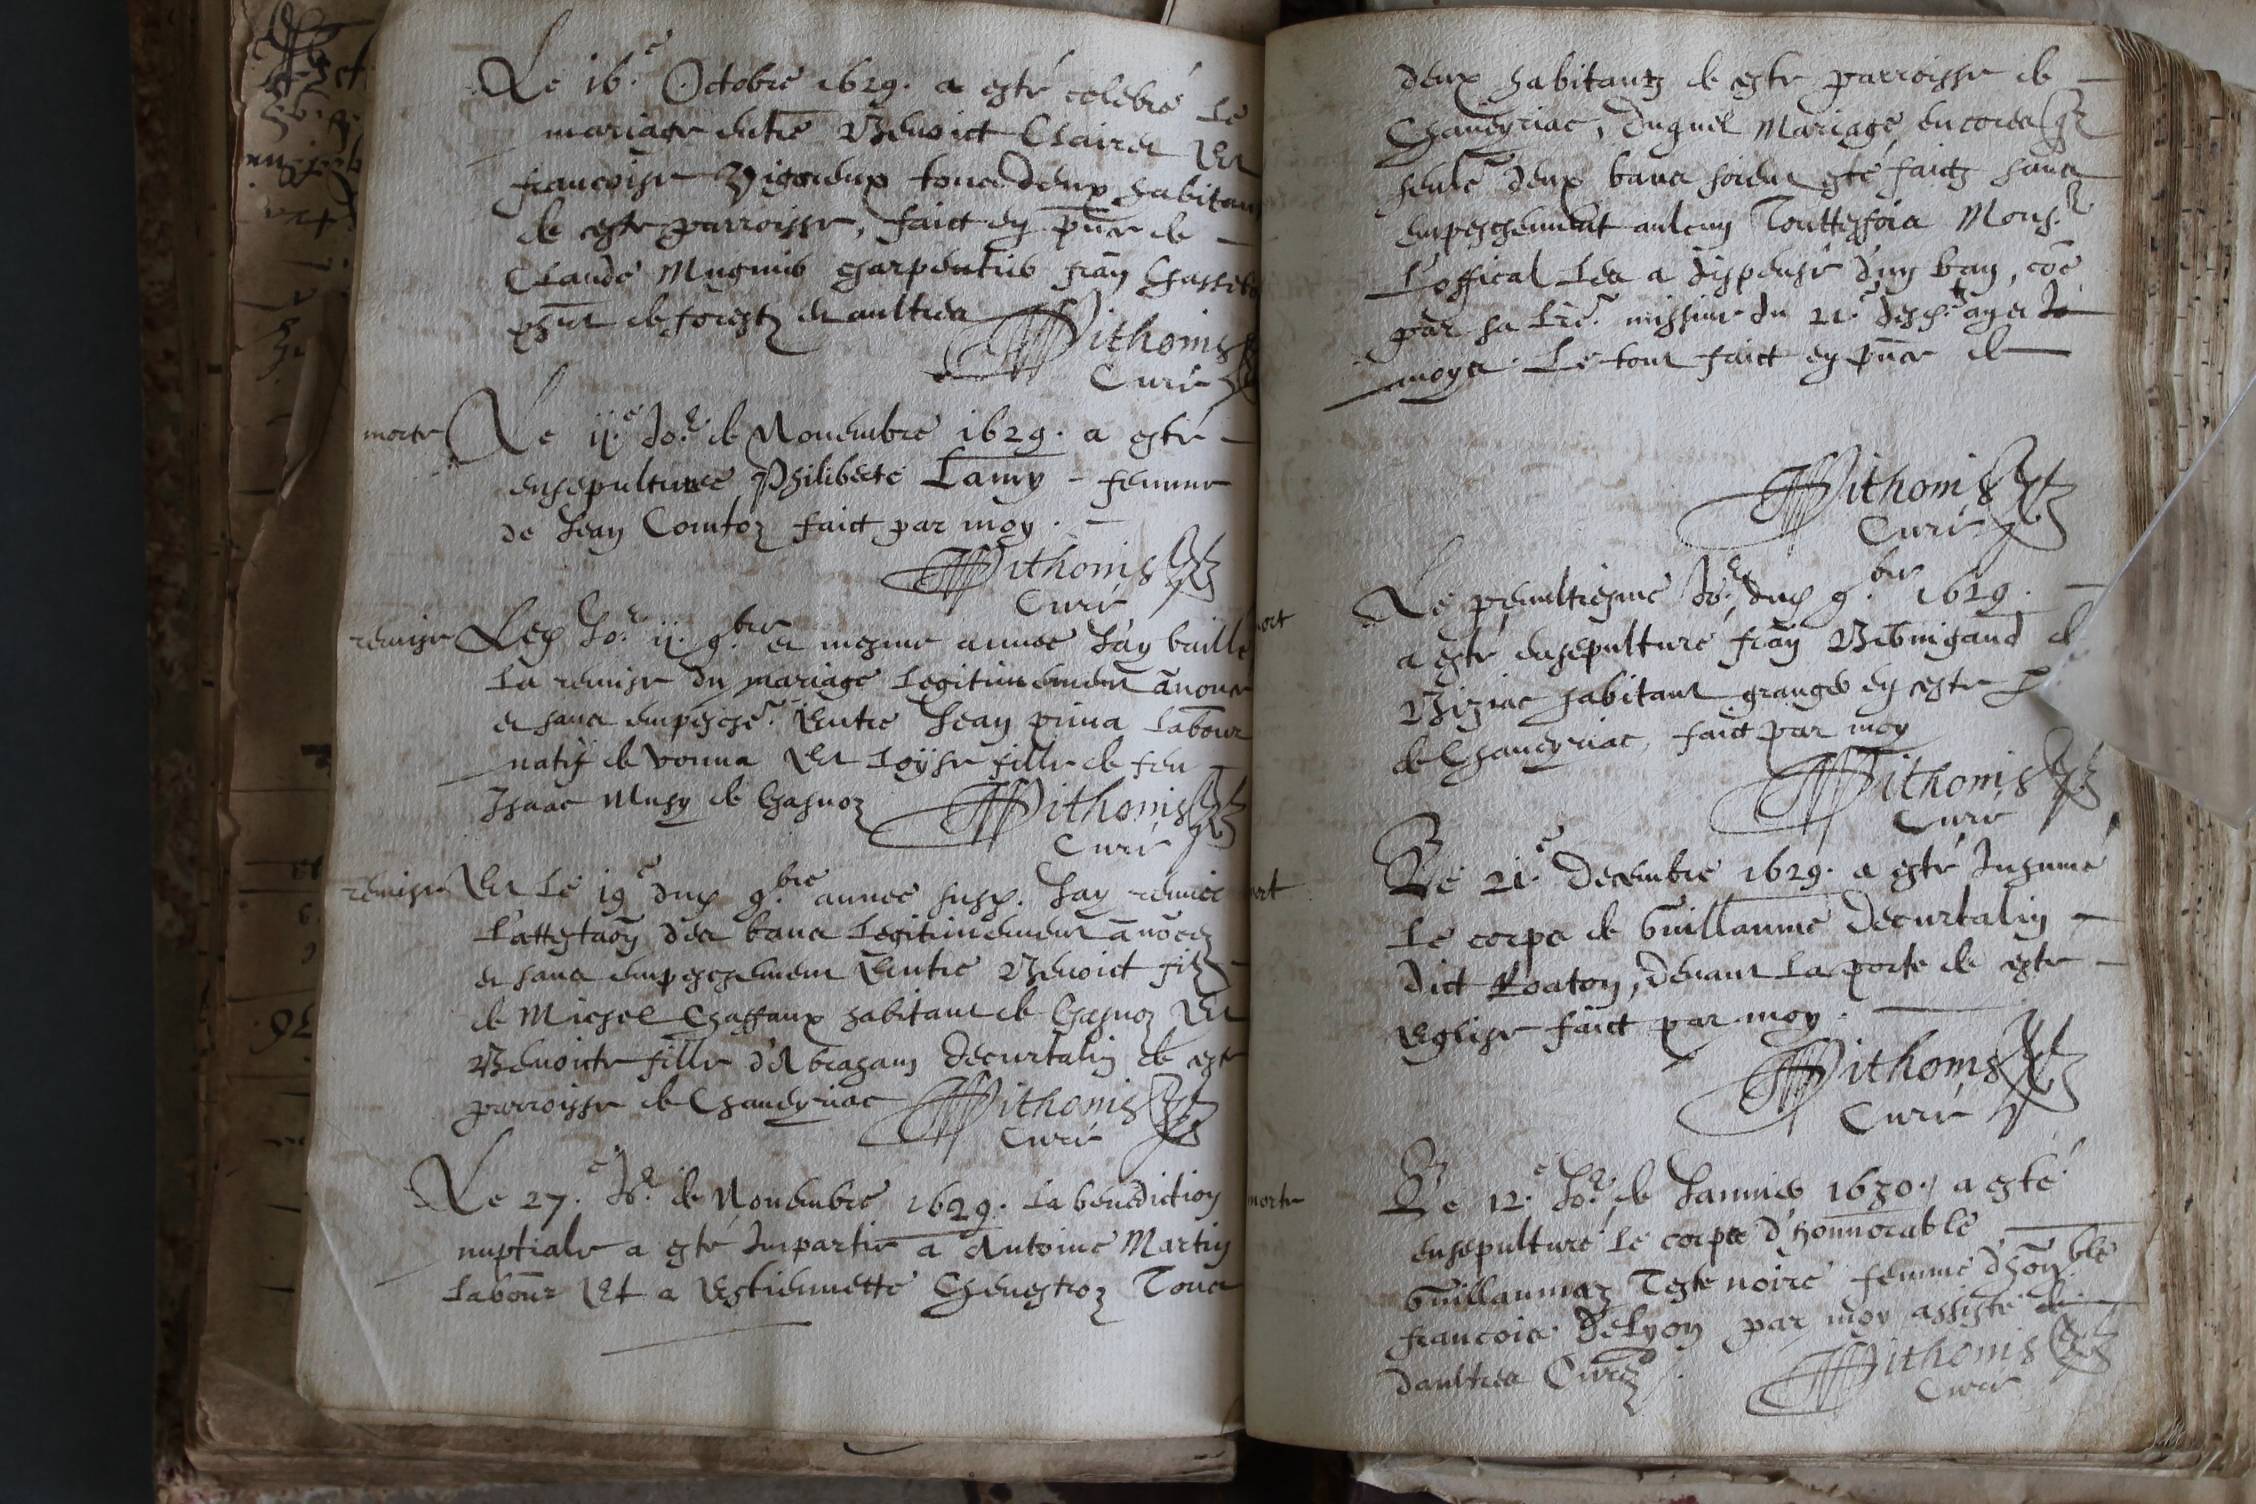 Le 16.e Octobre 1629. a esté celebré Le
mariage entre Benoict Clairet Et
francoise Vigoreux tous deux habitans
de ceste parroisse, faict en pnce de
Claude Mugnier charpentier fran
pnt de forestz et aultres
Pithonis
Curé
morte
Le ii.e Jo.r de Novembre 1629. a esté
ensepulturee Philiberte Lamy femme
de Jean Comtoz faict par moy.
Pithonis
Curé
remise
Led Jo.r ii. 9.bre et mesme annee J'ay baillé
La remise du mariage Legitimement anoncé
et sans empesche.t Entre Jean prina Labour
natif de vonna Et Loyse fille de feu
Isaac Musy de Chasnoz
Pithonis
Curé
remise
Et Le 19.e dud 9.bre annee susd. J'ay remise
L'attestaon des bans Legitimement anoncez
et sans empeschement Entre Benoict filz
de Michel Chaffaux habitant de Chasnoz Et
Benoicte fille d'Abraham Decurtalin de ceste
parroisse de Chaveyriac
Pithonis
Curé
Le 27.e Jo.r de Novembre 1629. La benediction
nuptiale a esté Impartie a Antoine Martin
Labour Et a Estiennette Chenestroz Tous
deux habitantz de ceste parroisse de
Chaveyriac, Duquel Mariage, encores q
seulemt deux bans soient esté faictz sans
empeschement aulcun Touttesfois Mons.r
L'offical Les a dispensé d'un ban, coe
par sa Lre missive du 21.e des
moys. Le tout faict en pnce de
Pithonis
Curé
mort
Le penultiesme Jo.r dud 9.bre 1629.
a esté ensepulturé fran de
Biziac habitant granger en ceste p
de Chaveyriac, faict par moy
Pithonis
Curé
mort
Le 21.e Decembre 1629. a esté Inhumé
Le corps de Guillaume Decurtalin
dict Roaton, devant La porte de ceste
Eglise faict par moy.
Pithonis
Curé
morte
Le 12.e Jo.r de Janvier 1630. a esté
ensepulturé Le corps d'honnorable
Guillaumaz Teste noire femme d'hon.ble
francois DeLyon par moy assisté de
daultres Curez
Pithonis
Curé